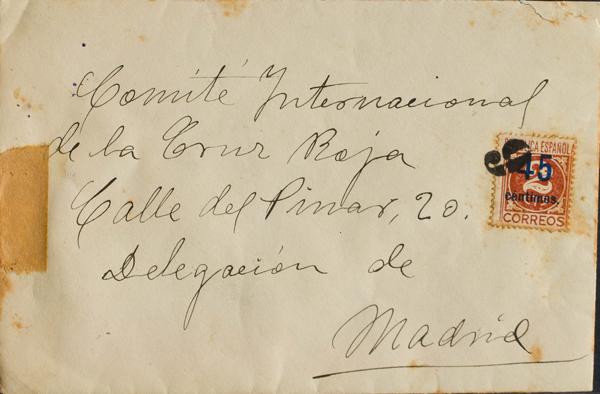 Comité Internacional
de la Cruz Roja
Calle del Pinar, 20.
Delegación de
Madrid
ESPAÑOLA
45
2
centimos.
CORREOS